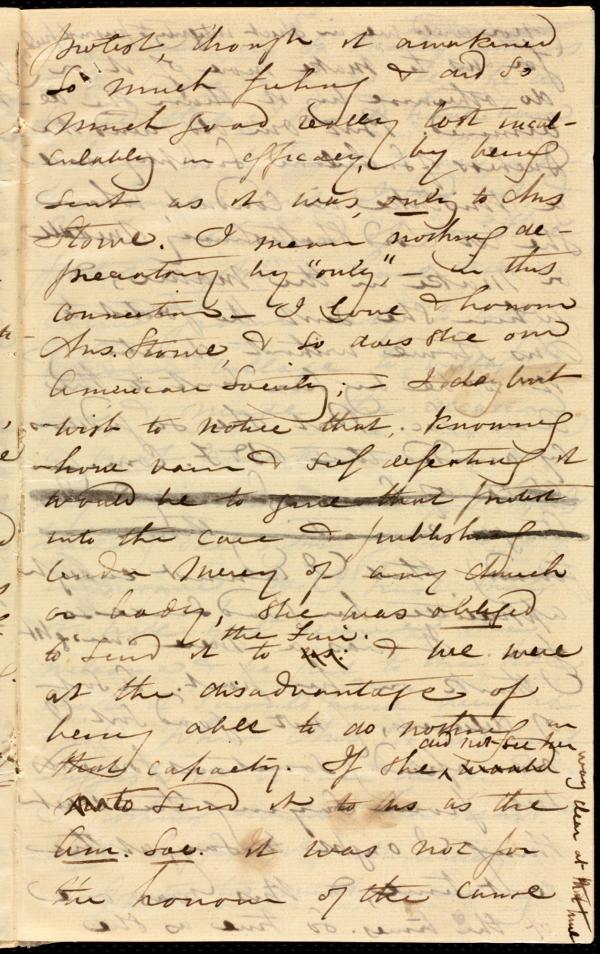 protest, though it awakened
so much feeling & did so
much good really lost incal-
culably in efficacy, by being
sent as it was, only to Mrs
Stowe. I mean nothing de-
precatory by "only", – in this
connection – I love & honour
Mrs. Stowe, & so does she our
American Society; – I do but
wish to notice that, knowing
how vain & self defeating it
would be to give that protest
into the care & publishing
under mercy of any church
or body, she was obliged
to send it to the Fair. & we were
at the disadvantage of
being able to do, nothing in
that capacity. If she did not see her
way clear at that time
to send it to us as the
Am. Soc. it was not for
the honour of the cause